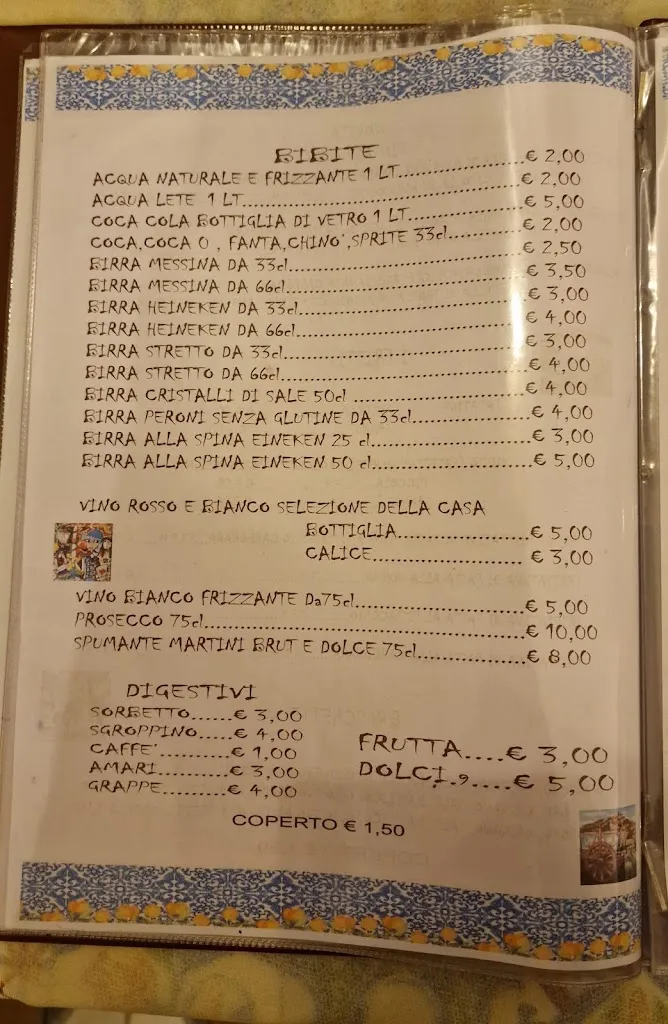 BIBITE
ACQUA NATURALE E FRIZZANTE 1 LT..........................€ 2,00
ACQUA LETE 1 LT..........................€ 2,00
COCA COLA BOTTIGLIA DI VETRO 1 LT..........................€ 5,00
COCA,COCA O , FANTA,CHINO',SPRITE 33cl..........................€ 2,00
BIRRA MESSINA DA 33cl..........................€ 2,50
BIRRA MESSINA DA 66cl..........................€ 3,50
BIRRA HEINEKEN DA 33cl..........................€ 3,00
BIRRA HEINEKEN DA 66cl..........................€ 4,00
BIRRA STRETTO DA 33cl..........................€ 3,00
BIRRA STRETTO DA 66cl..........................€ 4,00
BIRRA CRISTALLI DI SALE 50cl ..........................€ 4,00
BIRRA PERONI SENZA GLUTINE DA 33cl..........................€ 4,00
BIRRA ALLA SPINA EINEKEN 25 cl..........................€ 3,00
BIRRA ALLA SPINA EINEKEN 50 cl..........................€ 5,00
VINO ROSSO E BIANCO SELEZIONE DELLA CASA
BOTTIGLIA..........................€ 5,00
CALICE..........................€ 3,00
VINO BIANCO FRIZZANTE Da75cl..........................€ 5,00
PROSECCO 75cl..........................€ 10,00
SPUMANTE MARTINI BRUT E DOLCE 75cl..................€ 8,00
DIGESTIVI
SORBETTO......€ 3,00
SGROPPINO.....€ 4,00
CAFFE'..........€ 1,00
AMARI...........€ 3,00
GRAPPE.........€ 4,00
FRUTTA....€ 3,00
DOLCI.9....€ 5,00
COPERTO € 1,50